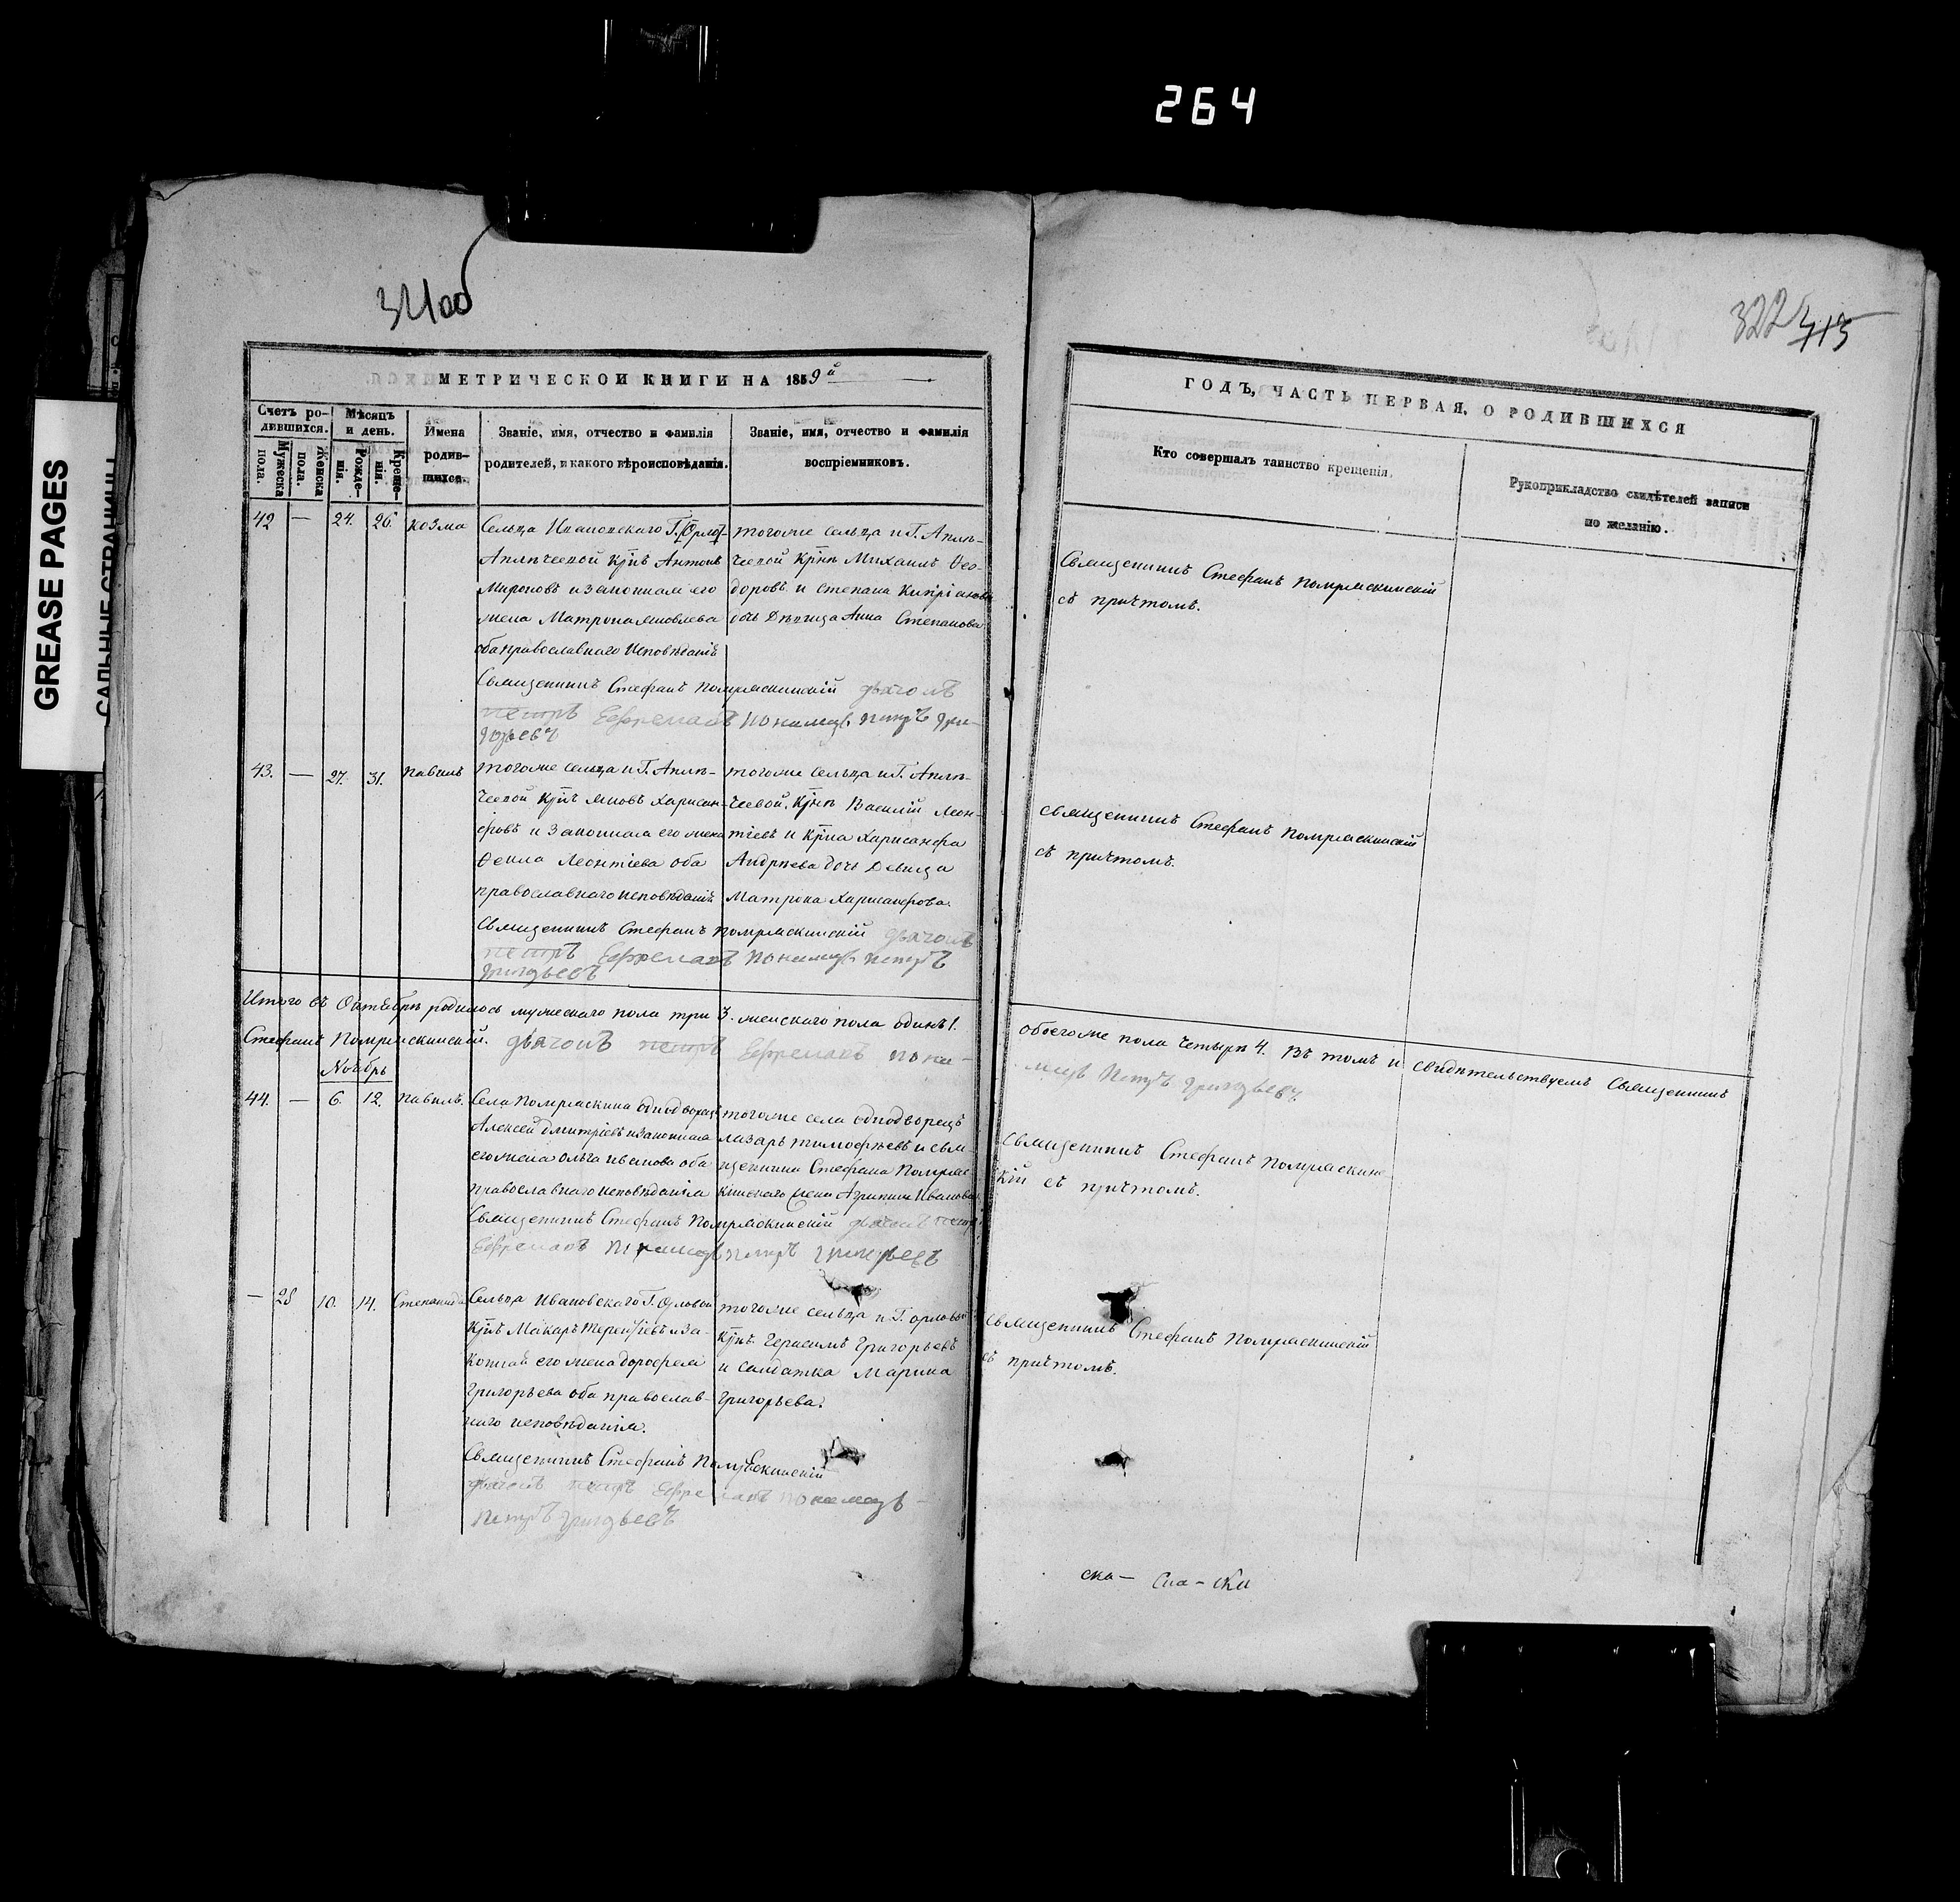 264
GREASE PAGES
САЛЬНЫЕ СТРАНИЦЫ
321об
322
413
МЕТРИЧЕСКОЙ КНИГИ НА 1859й
Счетъ родившихся.
Мужеска пола.
Женска пола.
Мѣсяцъ и день.
Рожденія.
Крещенія.
Имена родившихся.
Званіе, имя, отчество и фамилія родителей, и какого вѣроисповѣданія.
Званіе, имя, отчество и фамилія воспріемниковъ.
42 — 24. 26. Козма
Сельца Ивановскаго Г.
Антонъ
Мироновъ и законная его
жена Матрона Яковлева
оба православнаго исповѣданія
тогоже сельца и Г.
Михаилъ Ѳео-
доровъ и Степана Кипріанова
дочь Дѣвица Анна Степанова
Священникъ Стефанъ Помряскинскій дьячокъ
петръ Ефремовъ пономарь петръ Гри-
горьевъ
43. — 27. 31. Павелъ
тогоже сельца и Г.
Яковъ Харисан-
фовъ и законная его жена
Ѳекла Леонтіева оба
православнаго исповѣданія
тогоже сельца и Г.
Василій Леон-
тіевъ и Харисанфа
Андрѣева дочь Девица
Матрона Харисанфова.
Священникъ Стефанъ Помряскинскій дьячокъ
петръ Ефремовъ пономарь петръ
Григорьевъ
Итого въ Октябрѣ родилось мужескаго пола три 3. женскаго пола одинъ 1.
Стефанъ Помряскинскій. дьячокъ петръ Ефремовъ поно-
Ноябрь
44. — 6. 12. Павелъ.
Села Помряскина однодворецъ
Алексей Дмитріевъ и законная
его жена Ольга Иванова оба
православнаго исповѣданія
тогоже села однодворецъ
Лазарь Тимофѣевъ и свя-
щенника Стефана Помряс-
кинскаго жена Агрипина Иванова
Священникъ Стефанъ Помряскинскій дьячокъ петръ
Ефремовъ пономарь петръ Григорьевъ
— 28 10. 14. Степанида
Сельца Ивановскаго Г. Орловой
Макаръ Терентіевъ и за-
конная его жена Дорофея
Григорьева оба православ-
наго исповѣданія.
тогоже сельца и Г. Орловой
Герасимъ Григорьевъ
и солдатка Марина
Григорьева.
Священникъ Стефанъ Помряскинскій
дьячокъ петръ Ефремовъ пономарь
петръ Григорьевъ
ГОДЪ, ЧАСТЬ ПЕРВАЯ, О РОДИВШИХСЯ
Кто совершалъ таинство крещенія.
Рукоприкладство свидѣтелей записи по желанію.
Священникъ Стефанъ Помряскинскій
съ причтомъ.
Священникъ Стефанъ Помряскинскій
съ причтомъ.
обоегоже пола четыре 4. Въ томъ и свидѣтельствуемъ Священникъ
марь Петръ Григорьевъ.
Священникъ Стефанъ Помряскинс-
кій съ причтомъ.
Священникъ Стефанъ Помряскинскій
съ причтомъ.